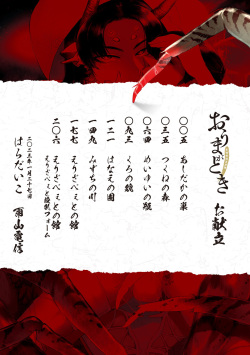 おうまがとき お献立
〇〇五 あしだかの巣
〇三五 つくねの森
〇六四 めいゆいの糀
〇九三 くろの貌
一二一 はなえの園
一四九 みずちの川
一七七 えりざべえとの館
二〇六 えりざべえとの館
二〇二三年一月二十七日
はらだいこ 雨山電信